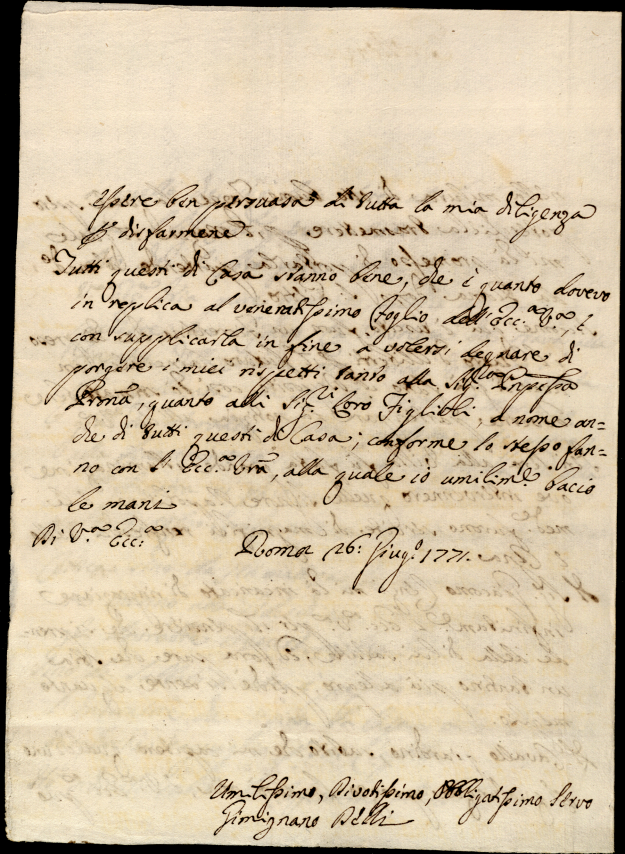 essere ben persuasa di tutta la mia diligenza
p disfarmene
Tutti questi di Casa stanno bene, che è quanto dovevo
in replica al veneratissimo foglio dell'Ecc.ª V.ª, e
con supplicarla in fine a volersi degnare di
porgere i miei rispetti tanto alla Sig.ra Pnpessa
Pròna, quanto alli Sig.ri Loro Figlioli, a nome an=
che di tutti questi di Casa; conforme lo stesso fan=
no con l'Ecc.ª Vrã, alla quale io umilim.e bacio
le mani
Di V.ª Ecc.ª Roma 26: Giug.o 1771.
Umilissimo, Divotissimo, Obbligatissimo Servo
Gimignano Belli